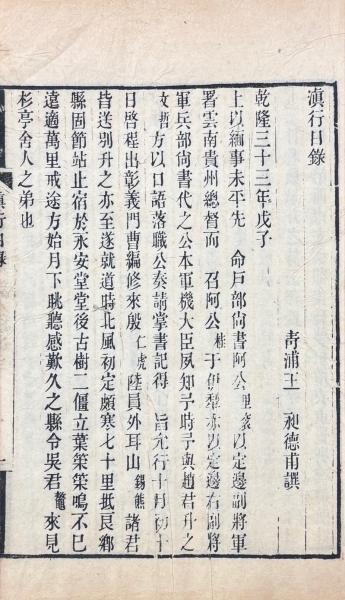 滇行日錄
青浦王　昶德甫譔
乾隆三十三年戊子
上以緬事未平先　命戶部尚書阿公里袞以定邊副將軍
署雲南貴州總督而　召阿公桂于伊犂亦以定邊右副將
軍兵部尚書代之公本軍機大臣夙知予時予與趙君升之
文哲方以口語落職公奏請掌書記得　旨允行十月初十
日啓程出彰義門曹編修來殷仁虎陸員外耳山錫熊諸君
皆送別升之亦至遂就道時北風初定頗寒七十里抵良鄉
縣固節站止宿於永安堂堂後古樹二僵立葉策策鳴不已
遠適萬里戒途方始月下眺聽感歎久之縣令吳君鼇來見
杉亭舍人之弟也
滇行日錄